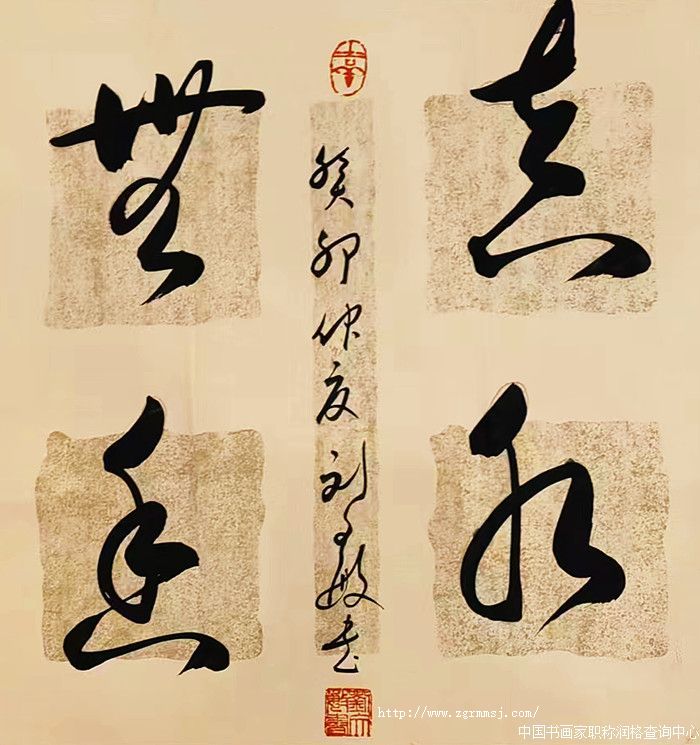 真水
無香
癸卯仲夏刘书
http://www.zgrmmsj.com/
中国书画家职称润格查询中心